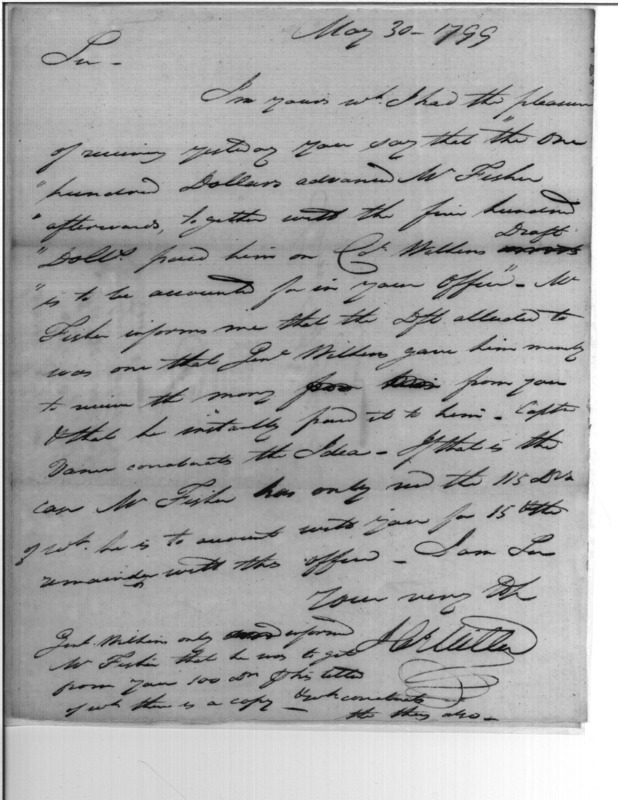 May 30 - 1799
Sir -
In yours wh. I had the pleasure
of receiving yesterday you say that "the One
"hundred Dollars advanced Mr Fisher
"afterwards, together with the five hundred
"Dolls paid him on Col. Wilkins Draft
"is to be accounted for in your Office" - Mr
Fisher informs me that the Dft alluded to
was one that Genl Wilkins gave him merely
to receive the money from you
& that he instantly paid it to him - Captn
Vance corroborates the Idea - If that is the
case Mr Fisher has only recd the 115 Drs
of wh. he is to account with you for 15 & the
remainder with this office - I am Sir
Your very
Genl Wilkins only informd
Mr Fisher that he was to get
from you 100 Drs & his letter
of wh. there is a copy & wh. corroborates
the this also -